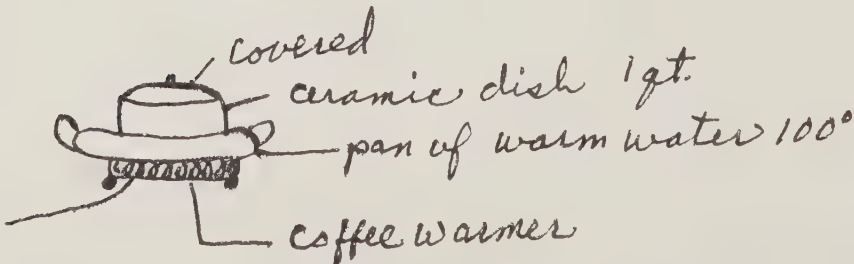 covered
ceramic dish 1 qt.
pan of warm water 100°
coffee warmer